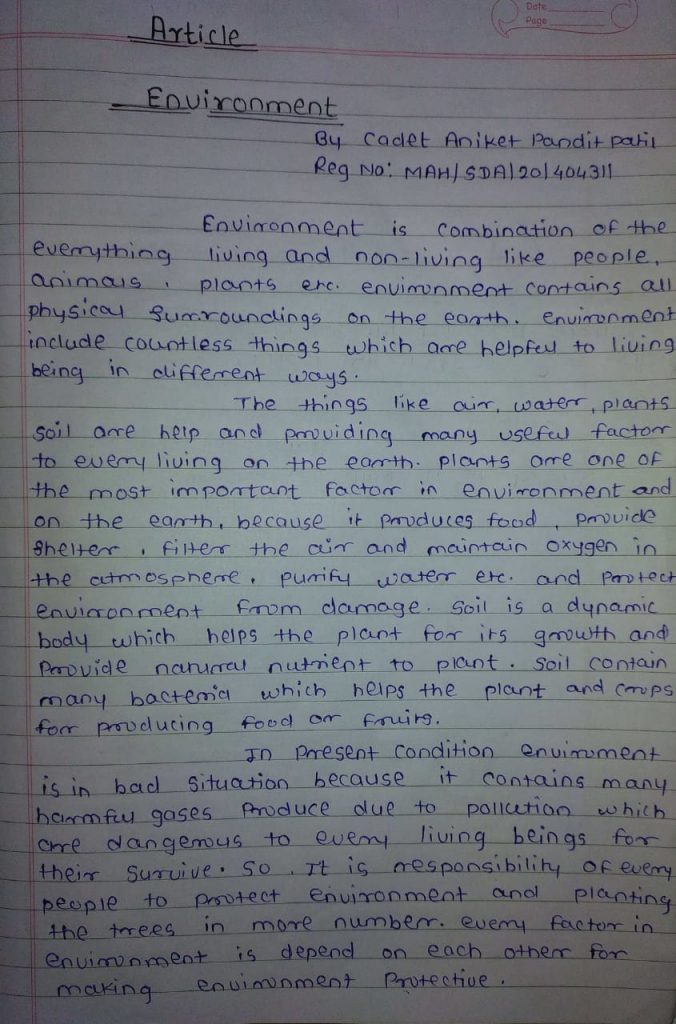 Date
Page
Article
Environment
By Cadet Aniket Pandit Patil
Reg No: MAH/SDA/20/404311
Environment is combination of the
everything living and non-living like people,
animals, plants etc. environment contains all
physical surroundings on the earth. environment
include countless things which are helpful to living
being in different ways.
The things like air, water, plants
soil are help and providing many useful factor
to every living on the earth. plants are one of
the most important factor in environment and
on the earth, because it produces food, provide
shelter, filter the air and maintain oxygen in
the atmosphere, purify water etc. and protect
environment from damage. Soil is a dynamic
body which helps the plant for its growth and
Provide natural nutrient to plant. Soil contain
many bacteria which helps the plant and crops
for producing food or fruits.
In Present Condition enviroment
is in bad Situation because it contains many
harmful gases Produce due to pollution which
are dangerous to every living beings for
their Survive. So, It is responsibility of every
people to protect environment and planting
the trees in more number. every factor in
environment is depend on each other for
making environment Protective.